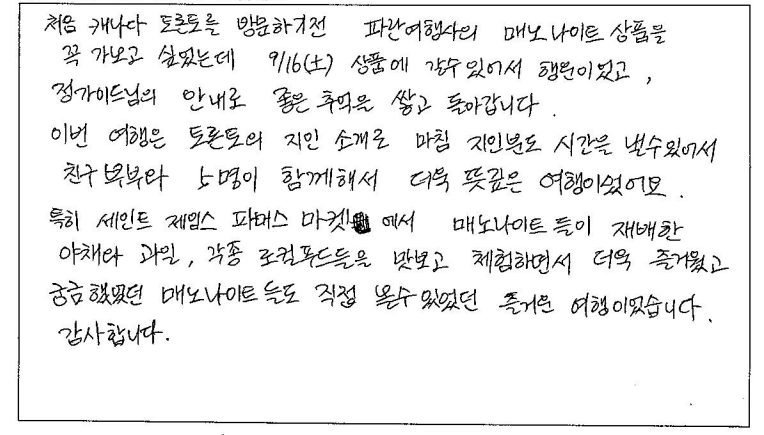 처음 캐나다 토론토를 방문하기전 파란여행사의 매노나이트 상품을
꼭 가보고 싶었는데 9/16(土) 상품에 갈수 있어서 행운이었고,
정가이드님의 안내로 좋은 추억을 쌓고 돌아갑니다.
이번 여행은 토론토의 지인 소개로 마침 지인분도 시간을 낼수있어서
친구 부부와 5명이 함께해서 더욱 뜻깊은 여행이었어요.
특히 세인트 제임스 파머스 마켓 에서 매노나이트들이 재배한
야채와 과일, 각종 로컬푸드들을 맛보고 체험하면서 더욱 즐거웠고
궁금했었던 매노나이트들도 직접 볼수있었던 즐거운 여행이었습니다.
감사합니다.